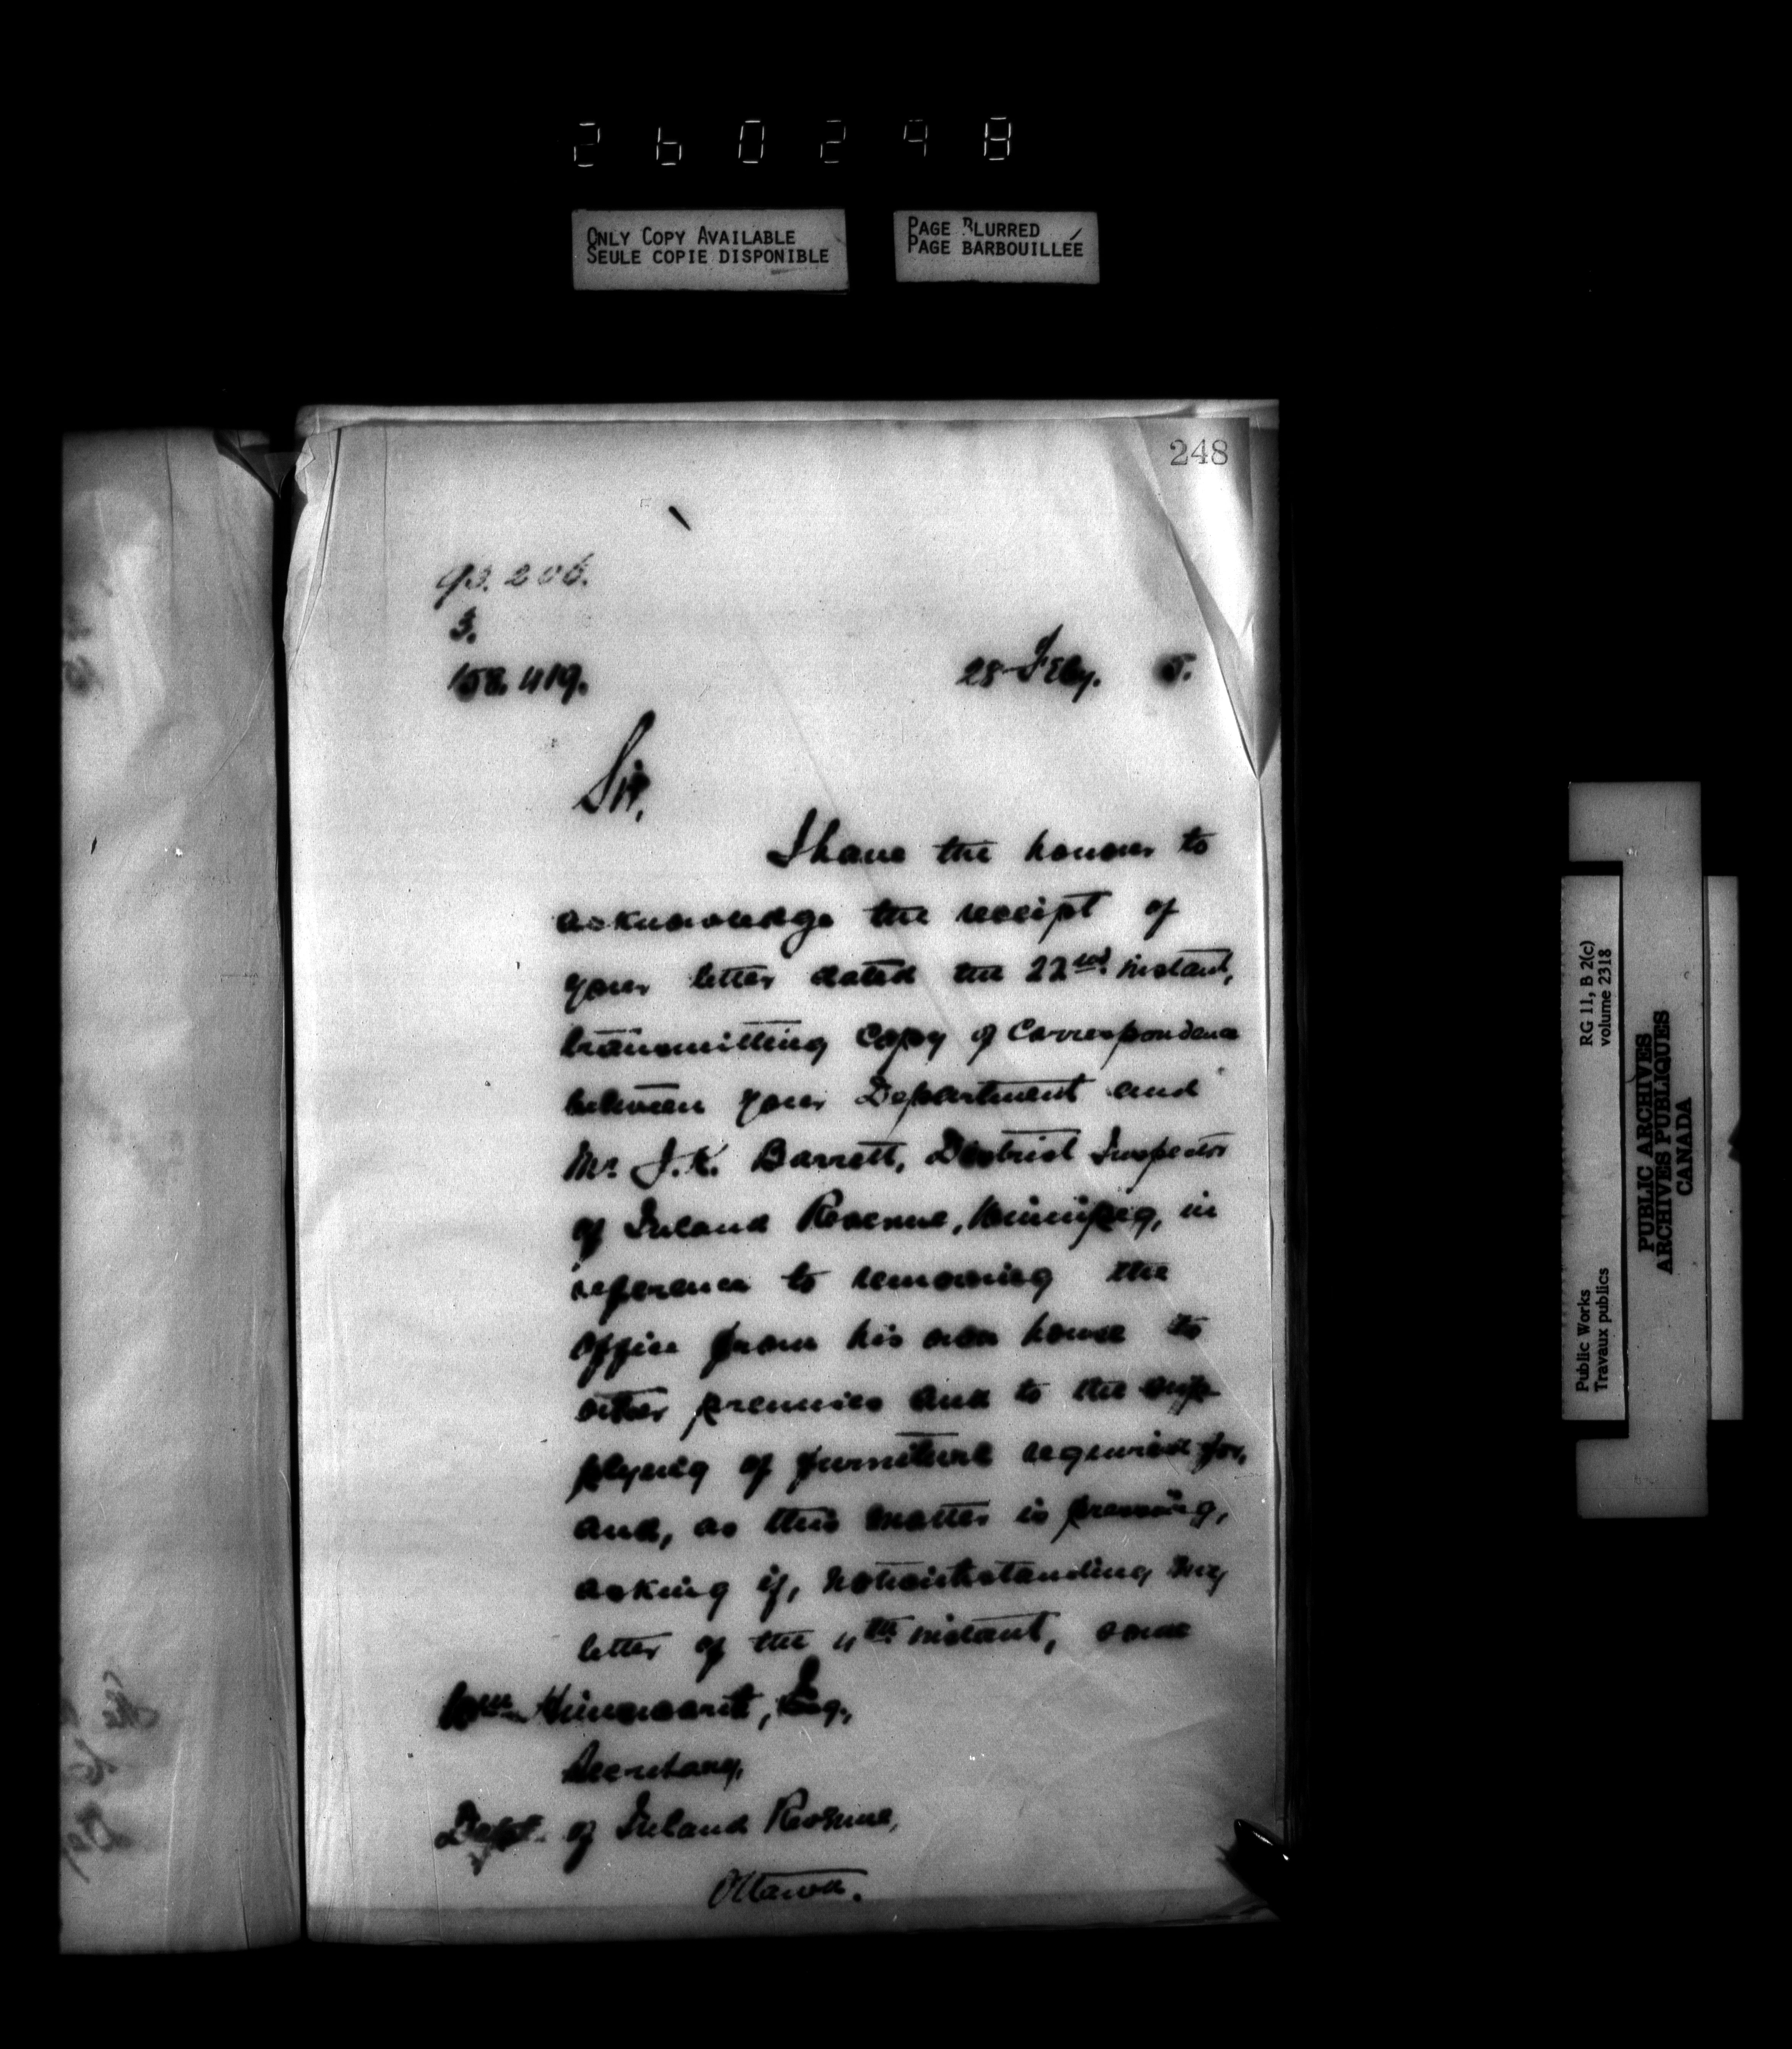 260248
ONLY COPY AVAILABLE
SEULE COPIE DISPONIBLE
PAGE BLURRED
PAGE BARBOUILLÉE
248
3.
158.419.
28 Feby. 5.
Sir,
I have the honour to
acknowledge the receipt of
your letter dated the 22nd. instant,
transmitting Copy of Correspondence
between your Department and
Mr J.K. Barrett, District Inspector
of Inland Revenue, Winnipeg, in
reference to removing the
office from his own house to
other premises and to the sup-
plying of furniture required for,
and, as this matter is pressing,
asking if, notwithstanding my
letter of the 4th. instant, some
Wm Himsworth, Esq.,
Secretary,
Dept. of Inland Revenue,
Ottawa.
Public Works
Travaux publics
RG 11, B 2(c)
volume 2318
PUBLIC ARCHIVES
ARCHIVES PUBLIQUES
CANADA